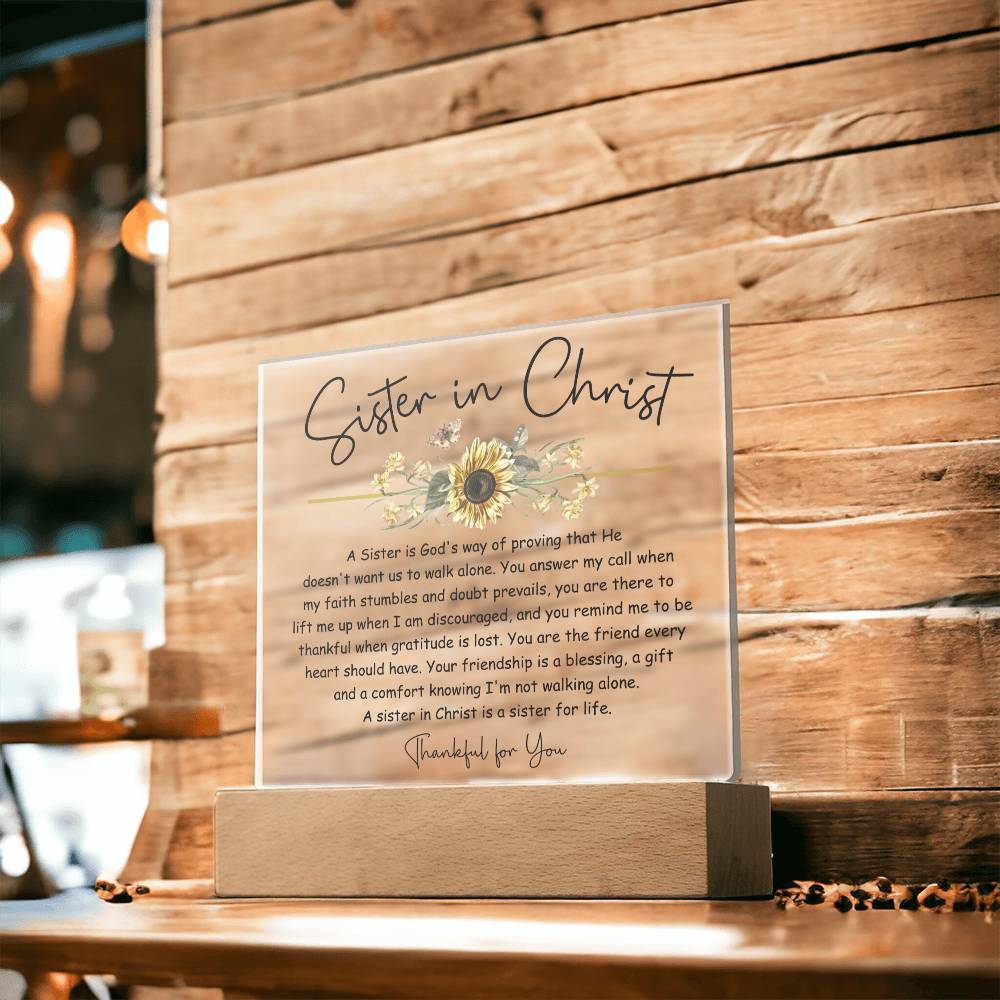 Sister in Christ
A Sister is God's way of proving that He
doesn't want us to walk alone. You answer my call when
my faith stumbles and doubt prevails, you are there to
lift me up when I am discouraged, and you remind me to be
thankful when gratitude is lost. You are the friend every
heart should have. Your friendship is a blessing, a gift
and a comfort knowing I'm not walking alone.
A sister in Christ is a sister for life.
Thankful for You